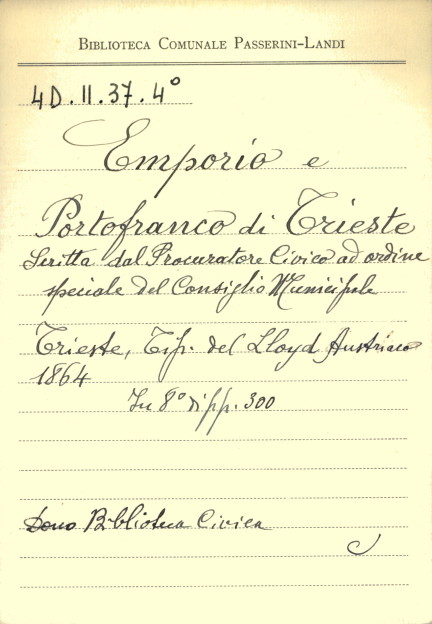 BIBLIOTECA COMUNALE PASSERINI-LANDI
4D.II.37.4°
Emporio e
Portofranco di Trieste
Scritta dal Procuratore Civico ad ordine
speciale del Consiglio Municipale
Trieste, Tip. del Lloyd Austriaco
1864
In 8° di pp. 300
Dono Biblioteca Civica